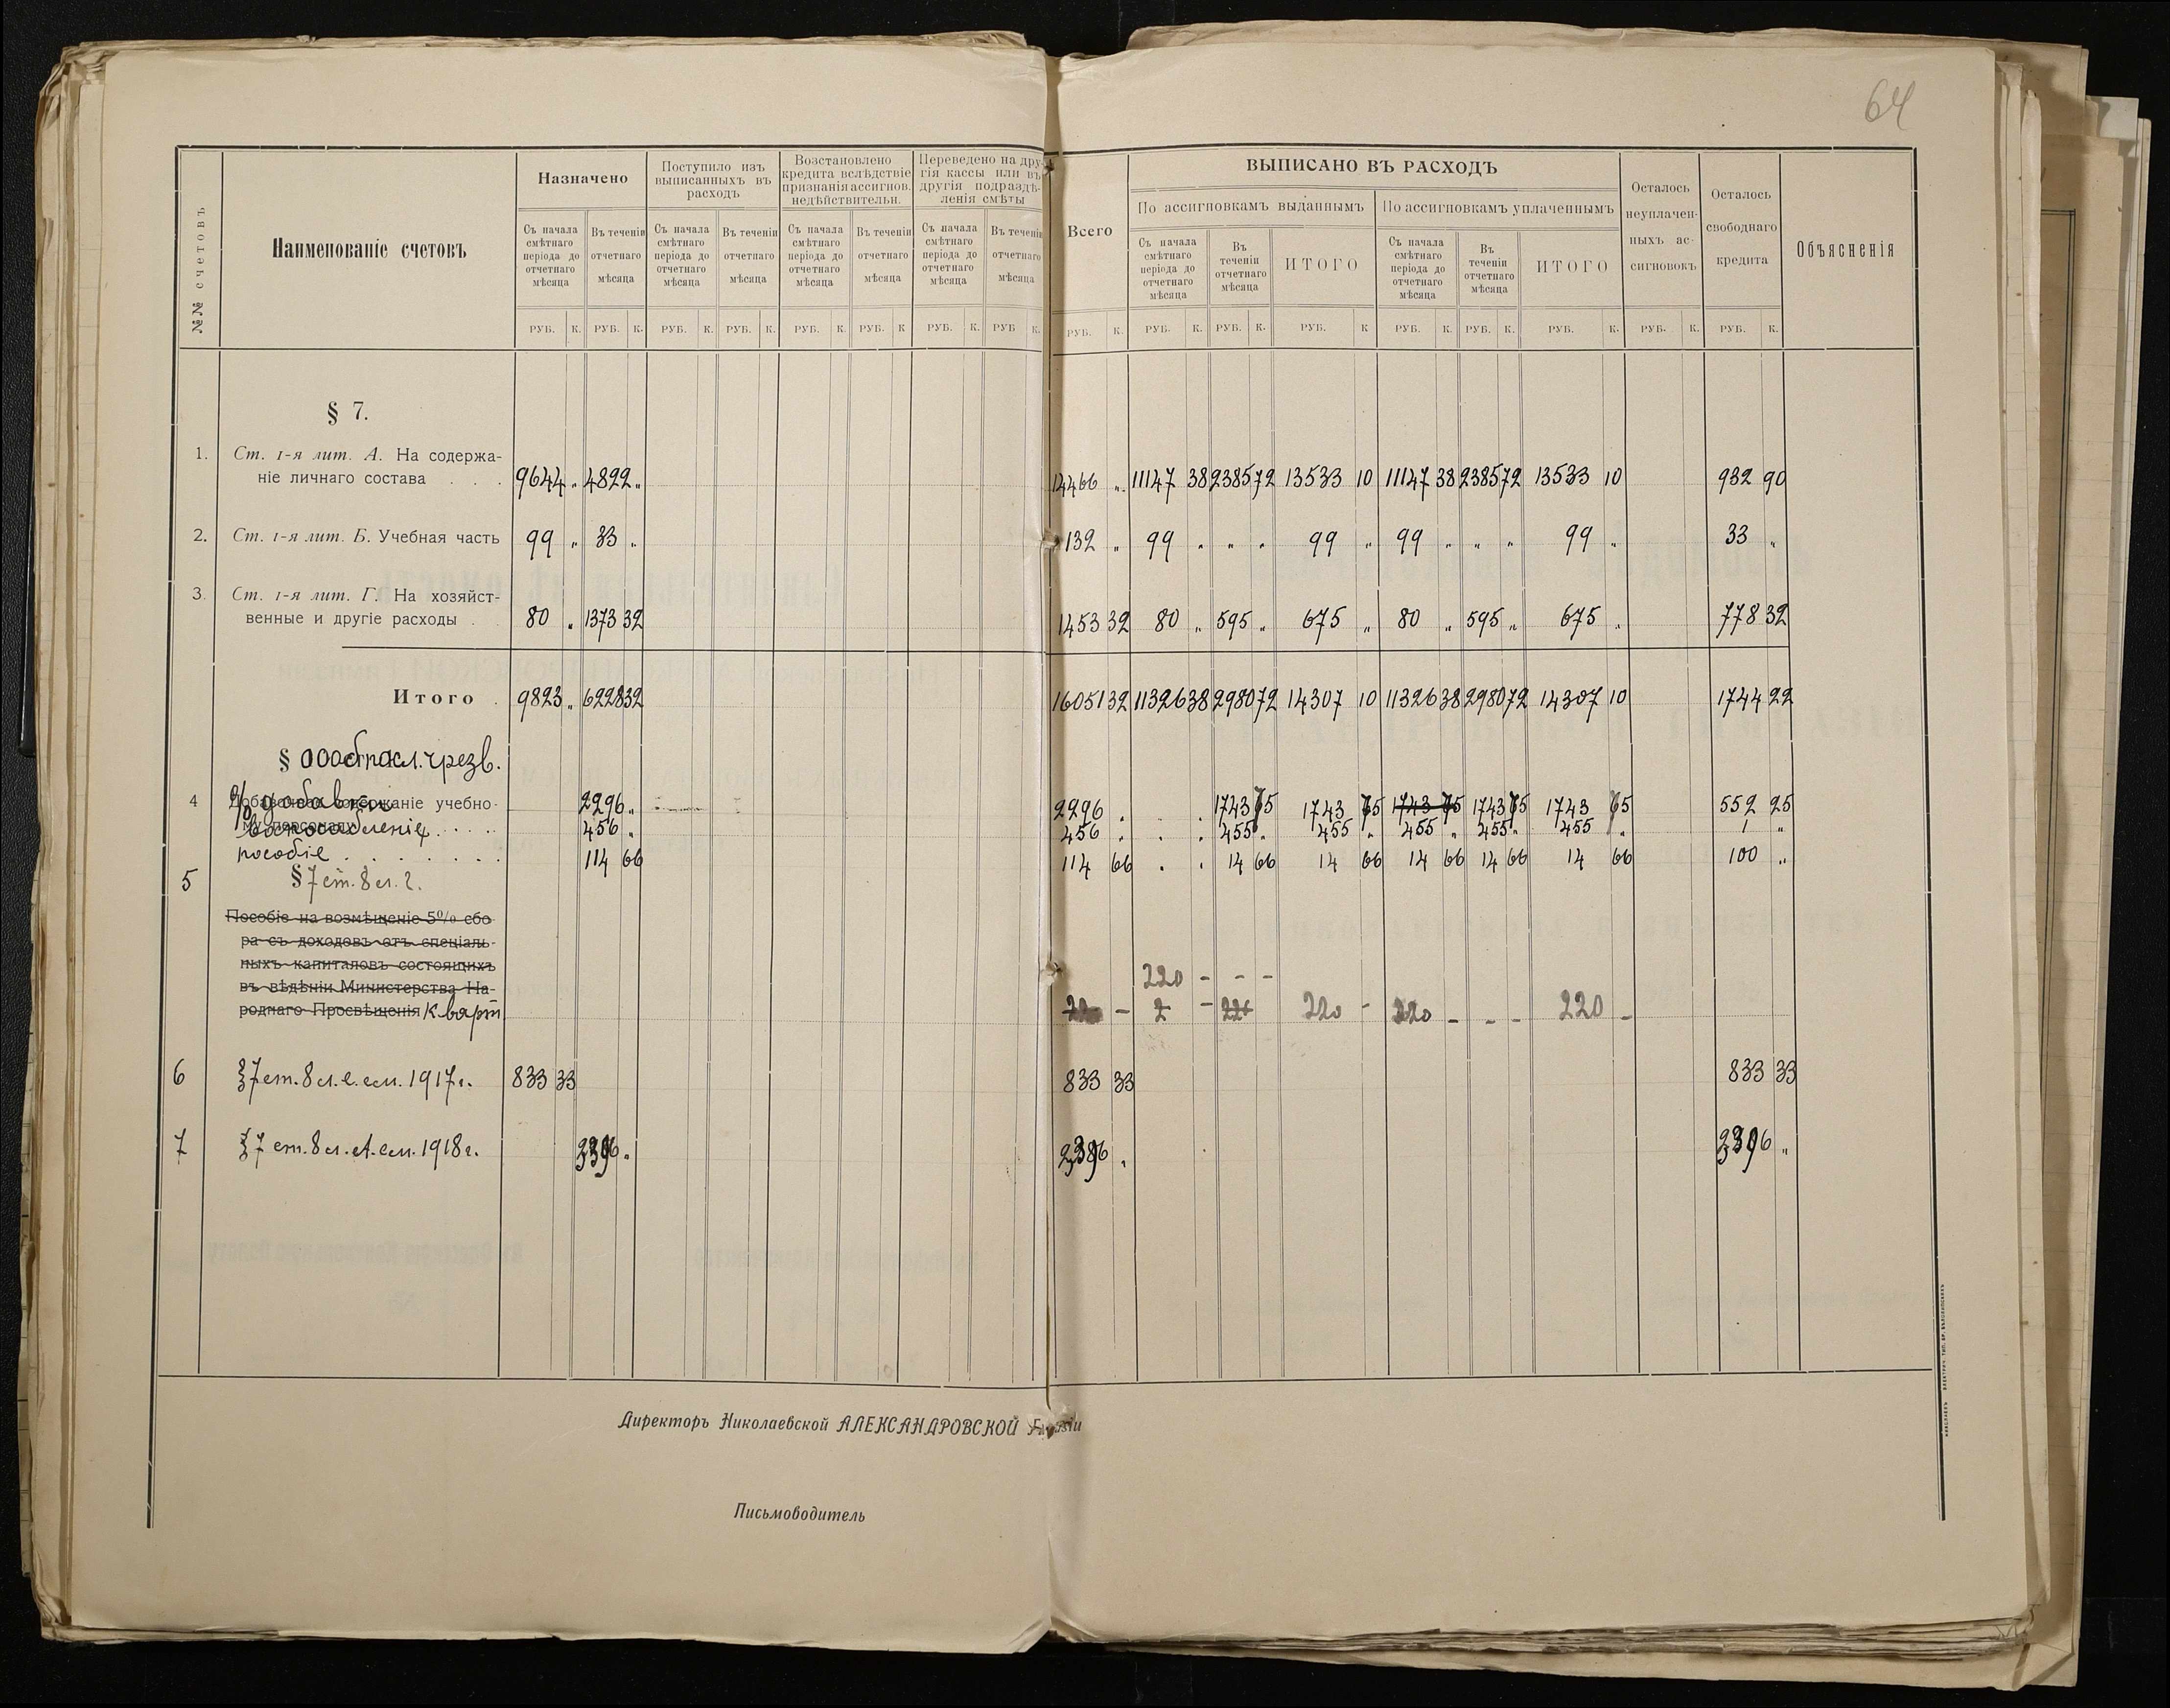 64
№№ счетовъ
Наименованіе счетовъ
Назначено
Поступило изъ
выписанныхъ въ
расходъ
Возстановлено
кредита вслѣдствіе
признанія ассигнов.
недѣйствительн.
Переведено на дру-
гія кассы или въ
другія подраздѣ-
ленія смѣты
Съ начала
смѣтнаго
періода до
отчетнаго
мѣсяца
Въ теченіи
отчетнаго
мѣсяца
Съ начала
смѣтнаго
періода до
отчетнаго
мѣсяца
Въ теченіи
отчетнаго
мѣсяца
Съ начала
смѣтнаго
періода до
отчетнаго
мѣсяца
Въ теченіи
отчетнаго
мѣсяца
Съ начала
смѣтнаго
періода до
отчетнаго
мѣсяца
Въ теченіи
отчетнаго
мѣсяца
РУБ. К. РУБ. К. РУБ. К. РУБ. К. РУБ. К. РУБ. К РУБ. К. РУБ К.
Всего
ВЫПИСАНО ВЪ РАСХОДЪ
По ассигновкамъ выданнымъ
По ассигновкамъ уплаченнымъ
Съ начала
смѣтнаго
періода до
отчетнаго
мѣсяца
Въ
теченіи
отчетнаго
мѣсяца
ИТОГО
Съ начала
смѣтнаго
періода до
отчетнаго
мѣсяца
Въ
теченіи
отчетнаго
мѣсяца
ИТОГО
Осталось
неуплачен-
ныхъ ас-
сигновокъ
Осталось
свободнаго
кредита
Объясненія
РУБ. К. РУБ. К. РУБ. К. РУБ. К РУБ. К. РУБ. К. РУБ. К. РУБ. К. РУБ. К.
§ 7.
1. Ст. 1-я лит. А. На содержа-
ніе личнаго состава . . . 9644 „ 4822 „ 14466 „ 11147 38 2385 72 13533 10 11147 38 2385 72 13533 10 932 90
2. Ст. 1-я лит. Б. Учебная часть 99 „ 33 „ 132 „ 99 „ „ „ 99 „ 99 „ „ „ 99 „ 33 „
3. Ст. 1-я лит. Г. На хозяйст-
венные и другіе расходы . . 80 „ 1373 32 1453 32 80 „ 595 „ 675 „ 80 „ 595 „ 675 „ 778 32
Итого . 9823 „ 6228 32 16051 32 11326 38 2980 72 14307 10 11326 38 2980 72 14307 10 1744 22
§ чрезв.
4 Добавочное содержаніе учебно-
му персоналу
% добавки 2296 „ 2296 . . 1743 75 1743 75 1743 75 1743 75 1743 75 552 25
456 „ 456 . . . 455 . 455 „ 455 „ 455 „ 455 „ 1 „
пособіе . . . . . . . 114 66 114 66 . . 14 66 14 66 14 66 14 66 14 66 100 „
5 § 7 ст. 8 л. г.
Пособіе на возмѣщеніе 5% сбо-
ра съ доходовъ отъ спеціаль-
ныхъ капиталовъ состоящихъ
въ вѣдѣніи Министерства На-
роднаго Просвѣщенія Кварт
220 - - -
220 - 220 220 -
6 § 7 ст. 8 л. см. 1917 г. 833 33 833 33 833 33
7 § 7 ст. 8 л. А. см. 1918 г.
Директоръ Николаевской АЛЕКСАНДРОВСКОЙ
Письмоводитель